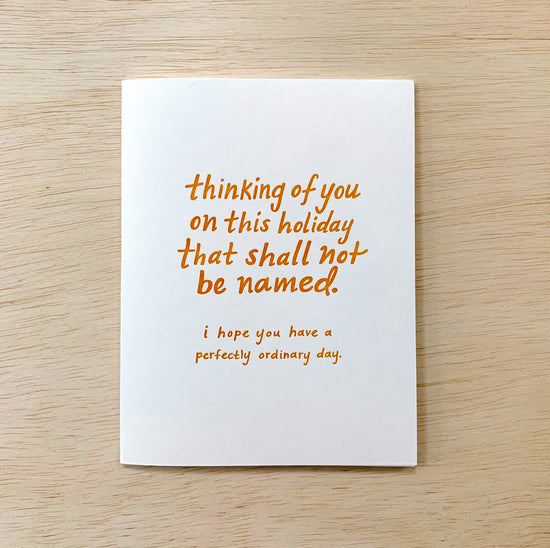 thinking of you
on this holiday
that shall not
be named.
i hope you have a
perfectly ordinary day.